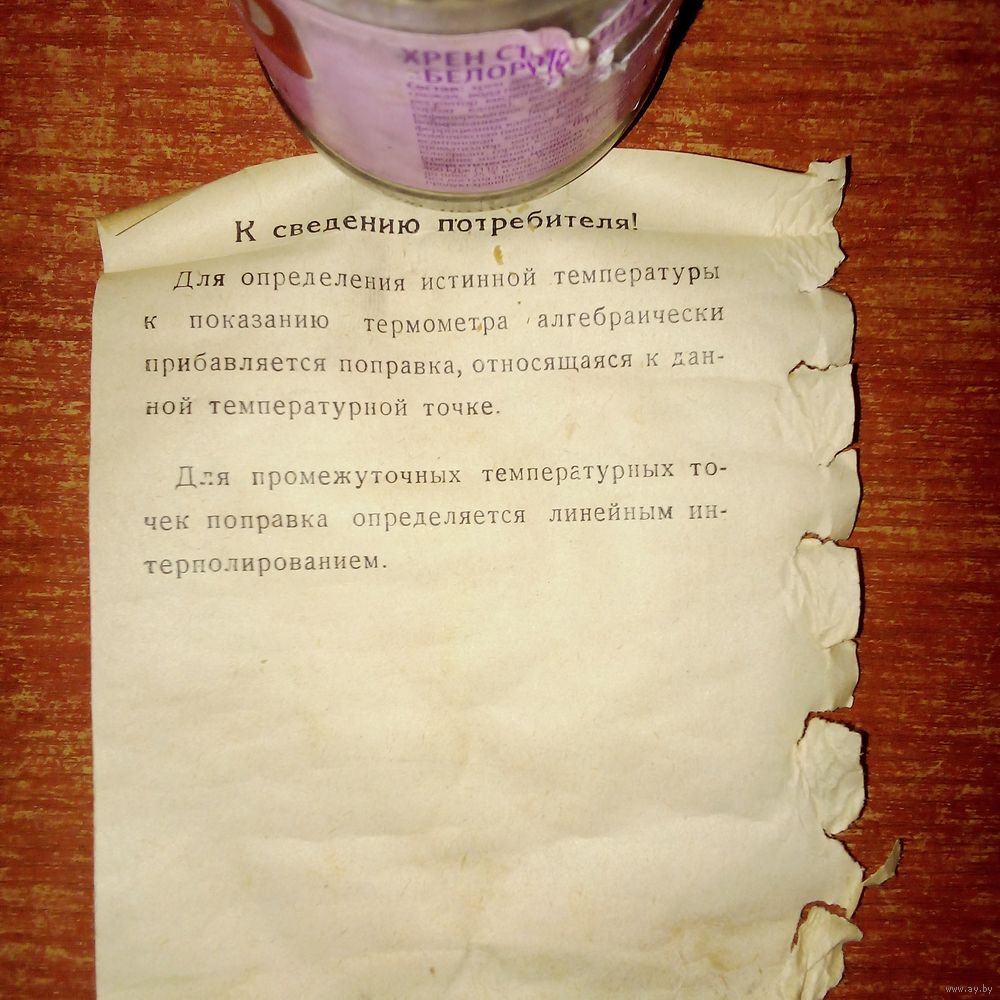 ХРЕН
К сведению потребителя!
Для определения истинной температуры
к показанию термометра алгебраически
прибавляется поправка, относящаяся к дан-
ной температурной точке.
Для промежуточных температурных то-
чек поправка определяется линейным ин-
терполированием.
www.ay.by